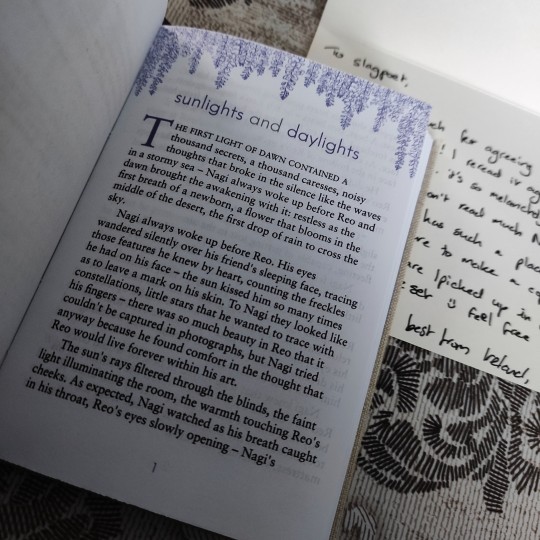 sunlights and daylights
THE FIRST LIGHT OF DAWN CONTAINED A
thousand secrets, a thousand caresses, noisy
thoughts that broke in the silence like the waves
in a stormy sea – Nagi always woke up before Reo and
dawn brought the awakening with it: restless as the
first breath of a newborn, a flower that blooms in the
middle of the desert, the first drop of rain to cross the
sky.
Nagi always woke up before Reo. His eyes
wandered silently over his friend's sleeping face, tracing
those features he knew by heart, counting the freckles
he had on his face – the sun kissed him so many times
as to leave a mark on his skin. To Nagi they looked like
constellations, little stars that he wanted to trace with
his fingers – there was so much beauty in Reo that it
couldn't be captured in photographs, but Nagi tried
anyway because he found comfort in the thought that
Reo would live forever within his art.
The sun's rays filtered through the blinds, the faint
light illuminating the room, the warmth touching Reo's
cheeks. As expected, Nagi watched as his breath caught
in his throat, Reo's eyes slowly opening – Nagi's
1
To slagpoet,
for agreeing
! I reread it
it's so
read much
has such a
to make a
picked up in
feel free
best from Ireland,